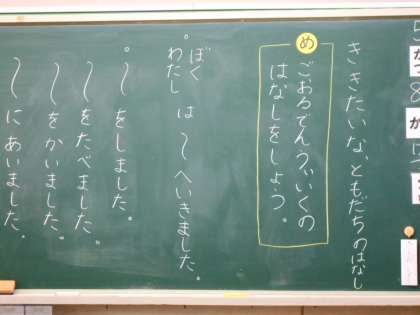 5がつ8
か
ききたいな、ともだちのはなし
め
ごおるでんうぃいくの
はなしをしよう。
。ぼく わたし は 〜へいきました。
。〜をしました。
〜をたべました。
〜をかいました。
〜にあいました。